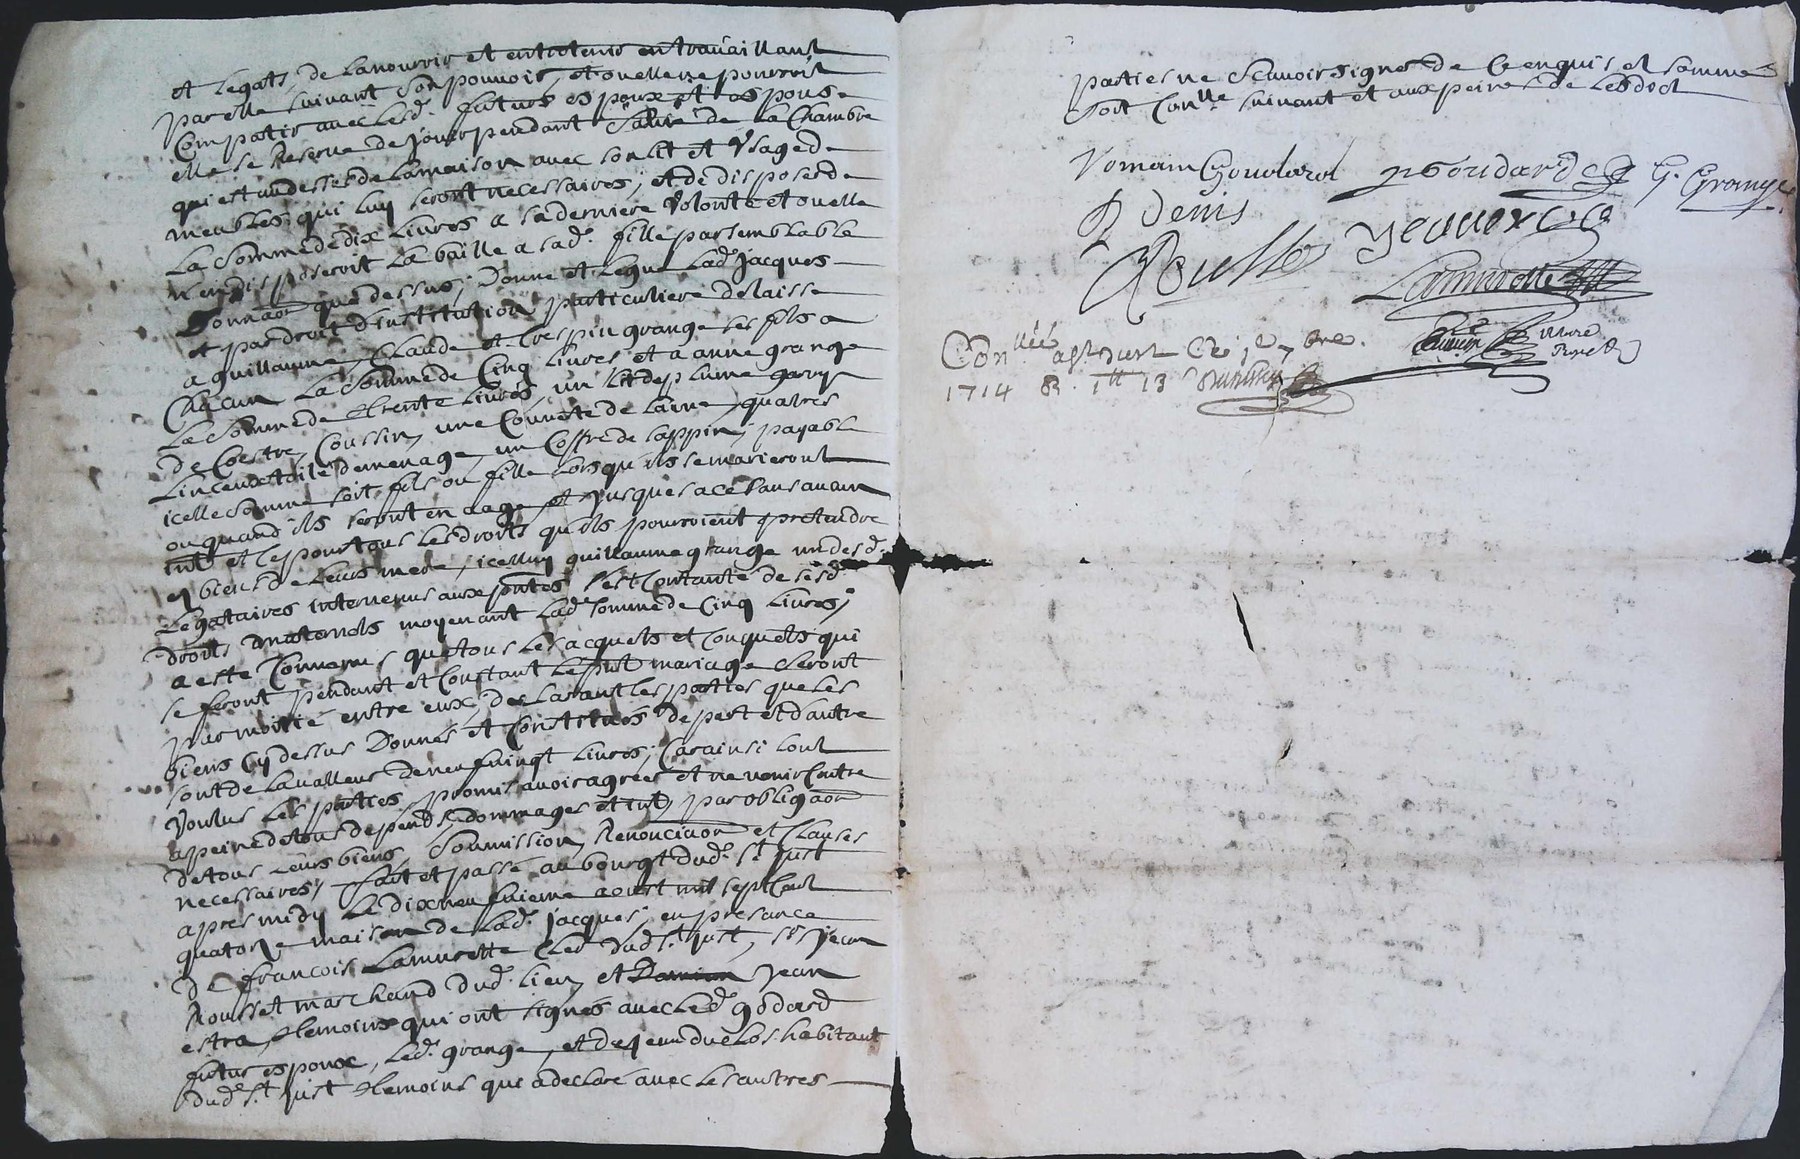 et legats, de la nourrir et entretenir en travaillant
par elle suivant son pouvoir, et ou elle ne pourroit
compatir avec lesd. futurs espoux et espouse
elle se reserve de jouir pendant sa vie de la chambre
qui est au dessus de la maison avec son lit et usage de
meubles qui luy seront necessaires, et de disposer de
la somme de dix livres a sa derniere volonté et ou elle
n'en disposeroit la baille a sad. fille par semblable
donnaon que dessus; donne et legue lad. jacques
et par droit d'institution particuliere delaisse
a guillaume, Claude et Crespin grange ses fils a
chacun la somme de cinq livres et a anne grange
la somme de trente livres, un lit de plume garny
de coestre, coussin, une couverte de laine, quatres
linceux toile de menage, un coffre de sappin, payable
icelle somme soit fils ou fille lors qu'ils se marieront
ou quand ils seront en aage et jusques a ce sans aucun
int. et ce pour tous les droits qu'ils pourroient pretendre
es biens de leurs mere, icelluy guillaume grange un desd.
legataires intervenus aux pntes s'est contanté de sesd.
droits maternels moyenant lad. somme de cinq livres;
a esté convenus que tous les acquets et conquets qui
se feront pendant et constant le pnt mariage seront
par moitié entre eux, declarant les parties que les
biens cy dessus donnés et constitués de part et d'autre
sont de la valleur de neufvingt livres; car ainsi l'ont
voulus les parties, promis avoir agreer et ne venir contre
a peine de tous depends, dommages et int. par obligaon
de tous leurs biens, soumission, renonciaon et clauses
necessaires, fait et passé au bourgt dud. st just
apres midy le dixneufvieme aoust mil sept cent
quatorze maison de lad. jacques; en presance
de francois Lamurette clerc dud. st just, sr jean
Rousset marchand dud. lieu, et jean
estra, temoins qui ont signés avec led. godard
futur espoux, led. grange, et de jean duclos habitant
dud. st just temoins qui a declaré avec les autres
parties ne scavoir signer de ce enquis et sommé
soit conlle suivant et aux peines de l'esdict
goudard G. Grange
D Denis
Rousset
Lamurette
Conllée a st just ce 1er 7bre
1714 R. 1tt 13s